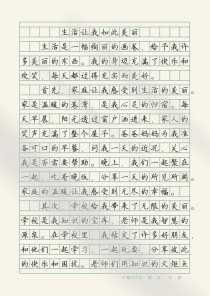 生活让我如此美丽
生活是一幅绚丽的画卷，给予我许
多美丽的东西。我的身边充满了快乐和
欢笑，每天都过得充实而美好。
首先，家庭让我感受到生活的美丽。
家是温暖的港湾，是我心灵的归宿。每
天早晨，阳光透过窗户洒进来，家人的
笑声充满了整个屋子。爸爸妈妈为我准
备可口的早餐，问我一天的近况，关心
我是否需要帮助。晚上，我们一起聚在
一起，吃着晚饭，分享一天的所见所闻。
家庭的温暖让我感受到无尽的幸福。
其次，学校给我带来了无限的美丽。
学校是我知识的宝库，老师们是我智慧的
源泉。在学校里，我结交了许多好朋友，
和他们一起学习，一起玩耍，分享彼此
的快乐和困扰。老师们用知识的火炬点